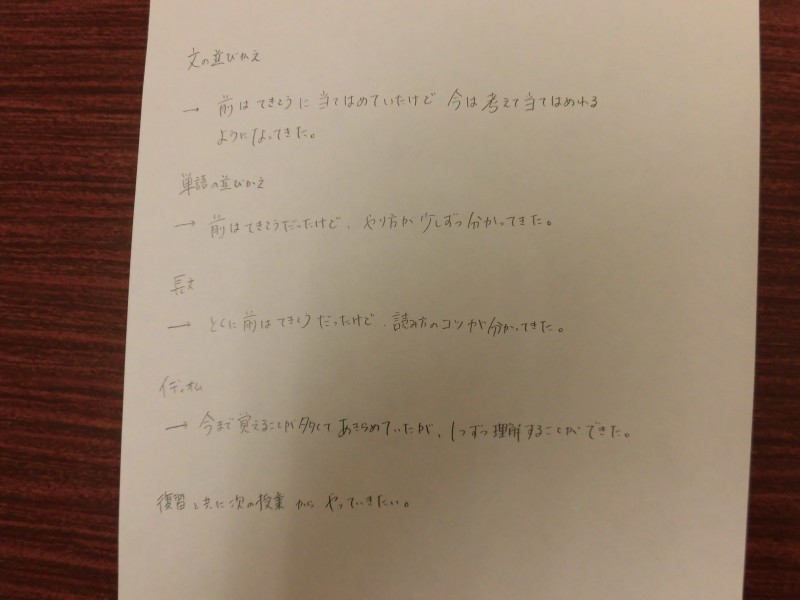 文の並びかえ
→ 前はてきとうに当てはめていたけど 今は考えて当てはめれる
ようになってきた。
単語の並びかえ
→ 前はてきとうだったけど、やり方が少しずつ分かってきた。
長文
→ とくに前はてきとうだったけど、読み方のコツが分かってきた。
イディオム
→ 今まで覚えることが多くてあきらめていたが、1つずつ理解することができた。
復習と共に次の授業からやっていきたい。